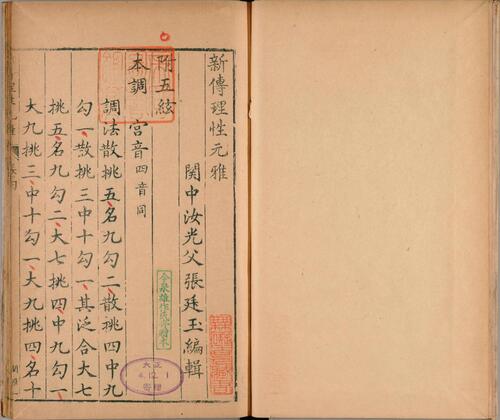 新傳理性元雅
関中汝光父張廷玉編輯
附五絃
本調 宮音四音同
調法散挑五名九勾二散挑四中九
勾一散挑三中十勾一其泛合大七
挑五名九勾二大七挑四中九勾一
大九挑三中十勾一大九挑四名十
今泉雄作氏寄贈本
大正
4.12.1
寄贈